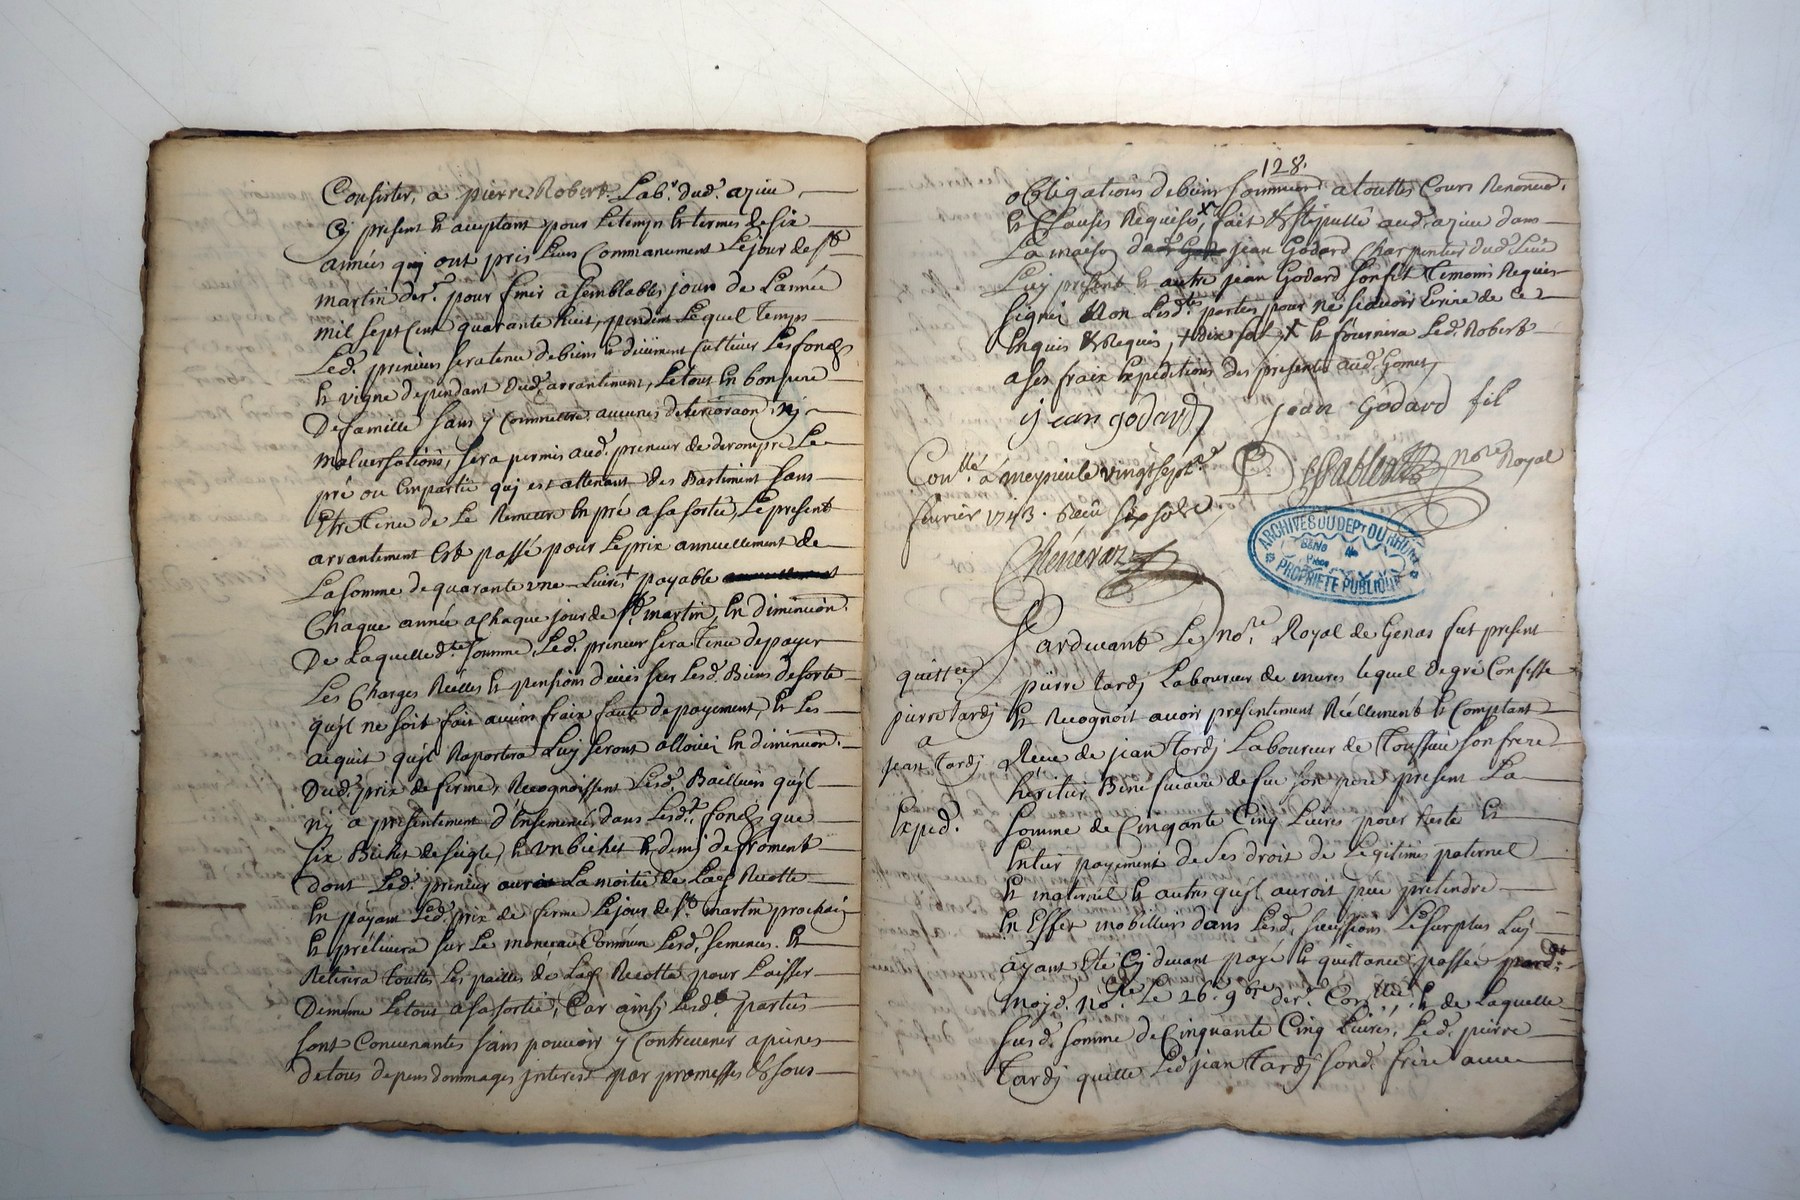 Consister, a pierre Robert Lab.r dud. azieu
Cy present et aceptant pour le temp et termes de six
années quj ont pris leurs Commancement le jour de st
martin der.r pour finir a semblable jour de L'année
mil sept Cent quarante huit, pendent Le quel temps
Led. preneur sera tenu de bien et düement Cultiver Les fonds
et vigne dependant dud. arrantement, Le tout en bon pere
De famille sans y Commettre aucunes deterioraon nj
malversations, sera permis aud. preneur de derompre Le
pré ou Empartie quj est attenant des Bastiment sans
Etre tenu de Le Remettre en pré a sa sortie, Le present
arrantement Est passé pour Le prix annuellement de
La somme de quarante une Livres + payable
Chaque année a chaque jour de st. martin, en diminüon.
De Laquelle d.te somme, Led. preneur sera tenu de payer
Les Charges Reelles et pensions düeës sur Lesd. Biens de sorte
qu'jl ne soit fait aucun fraix faute de payement, et Les
acquit qu'jl Raportera Luy seront alloüés en diminüon.
Dud. prix de ferme, Recognoissent Lesd. Bailleurs qu'jl
n'y a presentement d'Ensemencé dans Lesd. fonds que
six Bichet de seigle, et un bichet et demj de froment
dont Led. preneur aura La moitié de Lad. Recolte
en payant Led. prix de ferme Le jour de st. martin prochain
et prélevera sur Le monceau Commun Lesd. semences. et
Retirera touttes Les pailles de Lad. Recolte pour Laisser
De même Le tout a sa sortie, Car ainsj Lesd. parties
sont Convenantes sans pouvoir y Contrevenir a peines
de tous depens dommages jnterest par promesses et sous
128.
obligations de biens soumissions a touttes Cours Renonciõn.
et Clauses Requises x, fait et stipullé aud. azieu dans
La maison jean Godard Charpentier dud. Lieu
Luy present et autre jean Godard son fils temoins Requis
signéz Non Lesd.tes parties pour ne sçavoir Ecrire de ce
Enquis et Requis, + dix sol x et fournira Led. Robert
a ses fraix Expeditions des presentes aud. Gomet,
jean godard jean Godard fil
Con.llé a meyzieu le vingt sept.e
nore Royal
fevrier 1743. Reçu six sols
Chenevaz
ARCHIVES DU DEPT DU RHONE
PROPRIETE PUBLIQUE
Pardevant Le No.re Royal de Genas fut present
quittce
pierre tardj Laboureur de mures lequel de gré Confesse
pierre tardj
et Recognoit avoir presentement Réellement et Comptant
a
Receu de jean tardj Laboureur de toussieu son frere
jean tardj
héritier Béneficiaire de feu son pere present La
Exped.
somme de Cinquante Cinq Livres pour Reste et
Entier payement de ses droit de Legitimes paternel
et maternel et autre qu'jl auroit peu pretendre
en Effet mobilliers dans Lesd. sucessions Le surplus Luy
ayant Eté Cy devant payé et quittance passée pard.t
moyd. no.re Le 26.e 9bre der.r Con.llé et de Laquelle
susd. somme de Cinquante Cinq Livres, Led. pierre
tardj quitte Led. jean tardj sond. frere avec